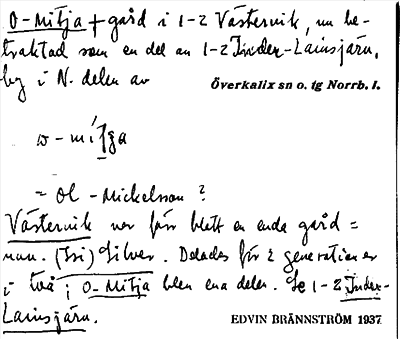 O-Mitja † gård i 1-2 Västervik, nu be-
traktad som en del av 1-2 Inder-Lainsjärv,
by i N. delen av
Överkalix sn o. tg Norrb. l.
= Ol -Mickelson ?
Västervik var förr blott en enda gård =
nun. Silver. Delades för 2 generationer
i två, O-Mitja blev ena delen. Se 1-2 Inder-
Lainsjärv.
EDVIN BRÄNNSTRÖM 1937